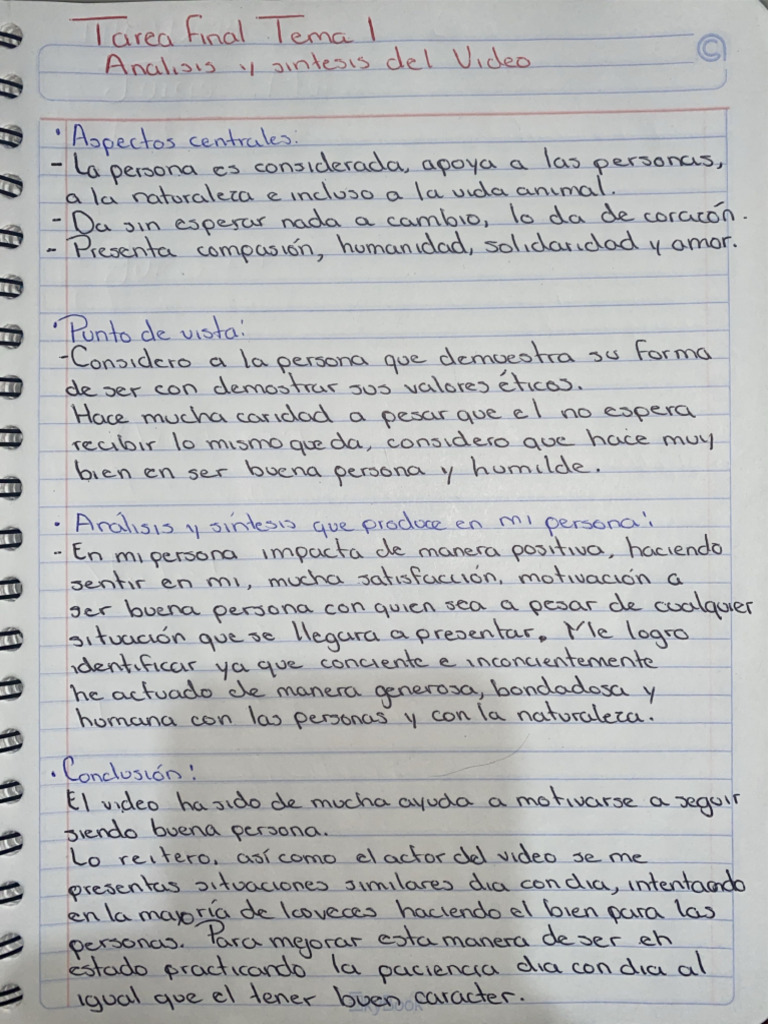 Tarea Final Tema 1
Analisis y sintesis del Video
©
• Aspectos centrales:
- La persona es considerada, apoya a las personas,
a la naturaleza e incluso a la vida animal.
- Da sin esperar nada a cambio, lo da de corazón.
- Presenta compasión, humanidad, solidaridad y amor.
• Punto de vista:
- Considero a la persona que demuestra su forma
de ser con demostrar sus valores éticos.
Hace mucha caridad a pesar que el no espera
recibir lo mismo que da, considero que hace muy
bien en ser buena persona y humilde.
• Análisis y síntesis que produce en mi persona:
- En mi persona impacta de manera positiva, haciendo
sentir en mi, mucha satisfacción, motivación a
ser buena persona con quien sea a pesar de cualquier
situación que se llegara a presentar. Me logro
identificar ya que conciente e inconcientemente
he actuado de manera generosa, bondadosa y
humana con las personas y con la naturaleza.
• Conclusión:
El video ha sido de mucha ayuda a motivarse a seguir
siendo buena persona.
Lo reitero, así como el actor del video se me
presentas situaciones similares dia con dia, intentando
en la mayoría de veces haciendo el bien para las
personas. Para mejorar esta manera de ser eh
estado practicando la paciencia dia con dia al
igual que el tener buen caracter.